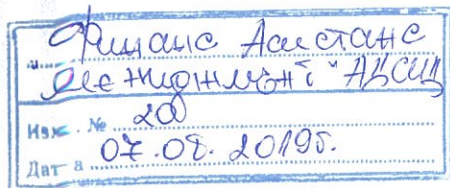 „Финанс Асистанс
Мениджмънт" АДСИЦ
Изх. № 200
Дата 07.08.2019г.